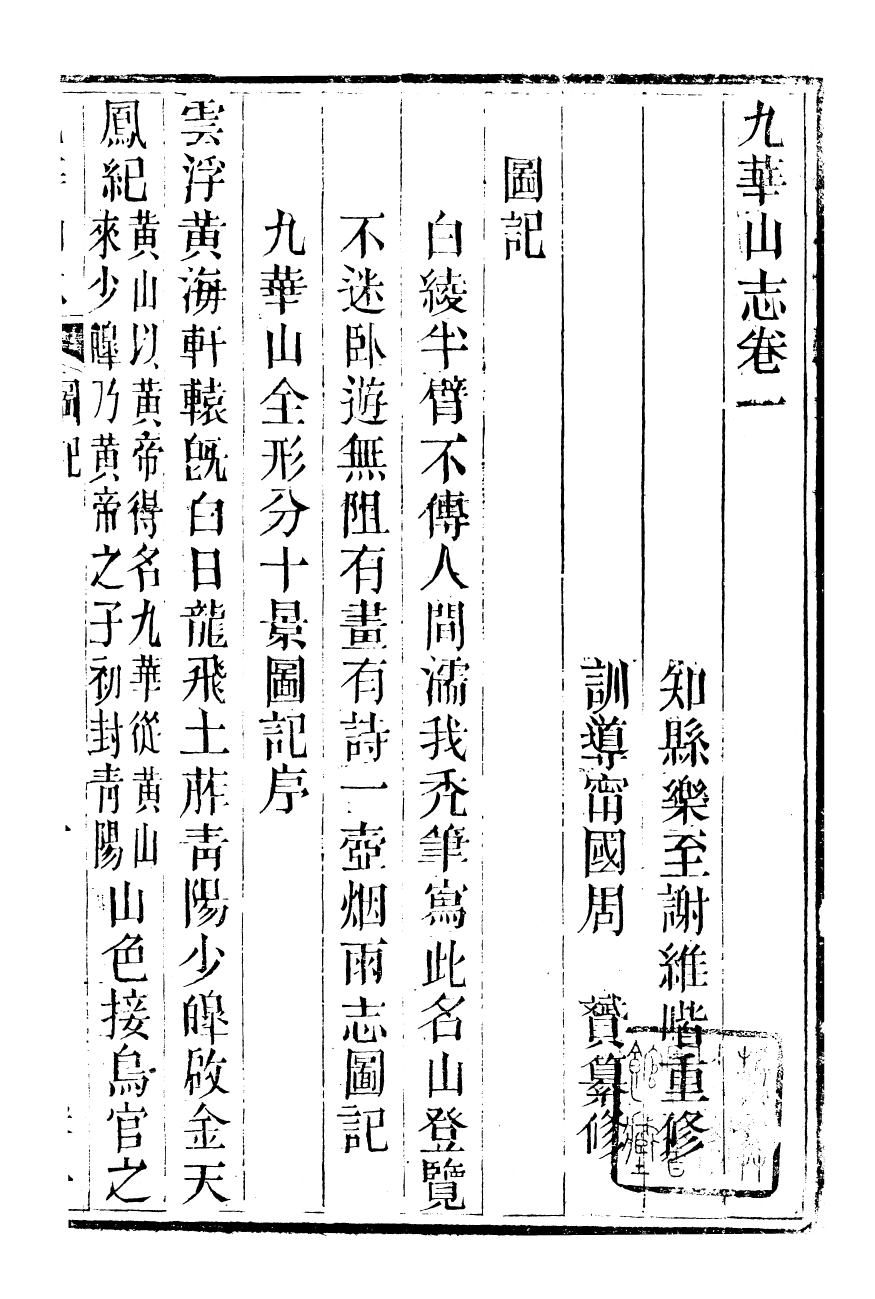 九華山志卷一
知縣樂至謝維喈重修
訓導甯國周　贇纂修
圖記
白綾半臂不傳人間濡我禿筆寫此名山登覽
不迷卧遊無阻有畫有詩一壺烟雨志圖記
九華山全形分十景圖記序
雲浮黃海軒轅旣白日龍飛土胙靑陽少皥啟金天
鳳紀黃山以黃帝得名九華從黃山
來少皥乃黃帝之子初封靑陽山色接鳥官之
圖記